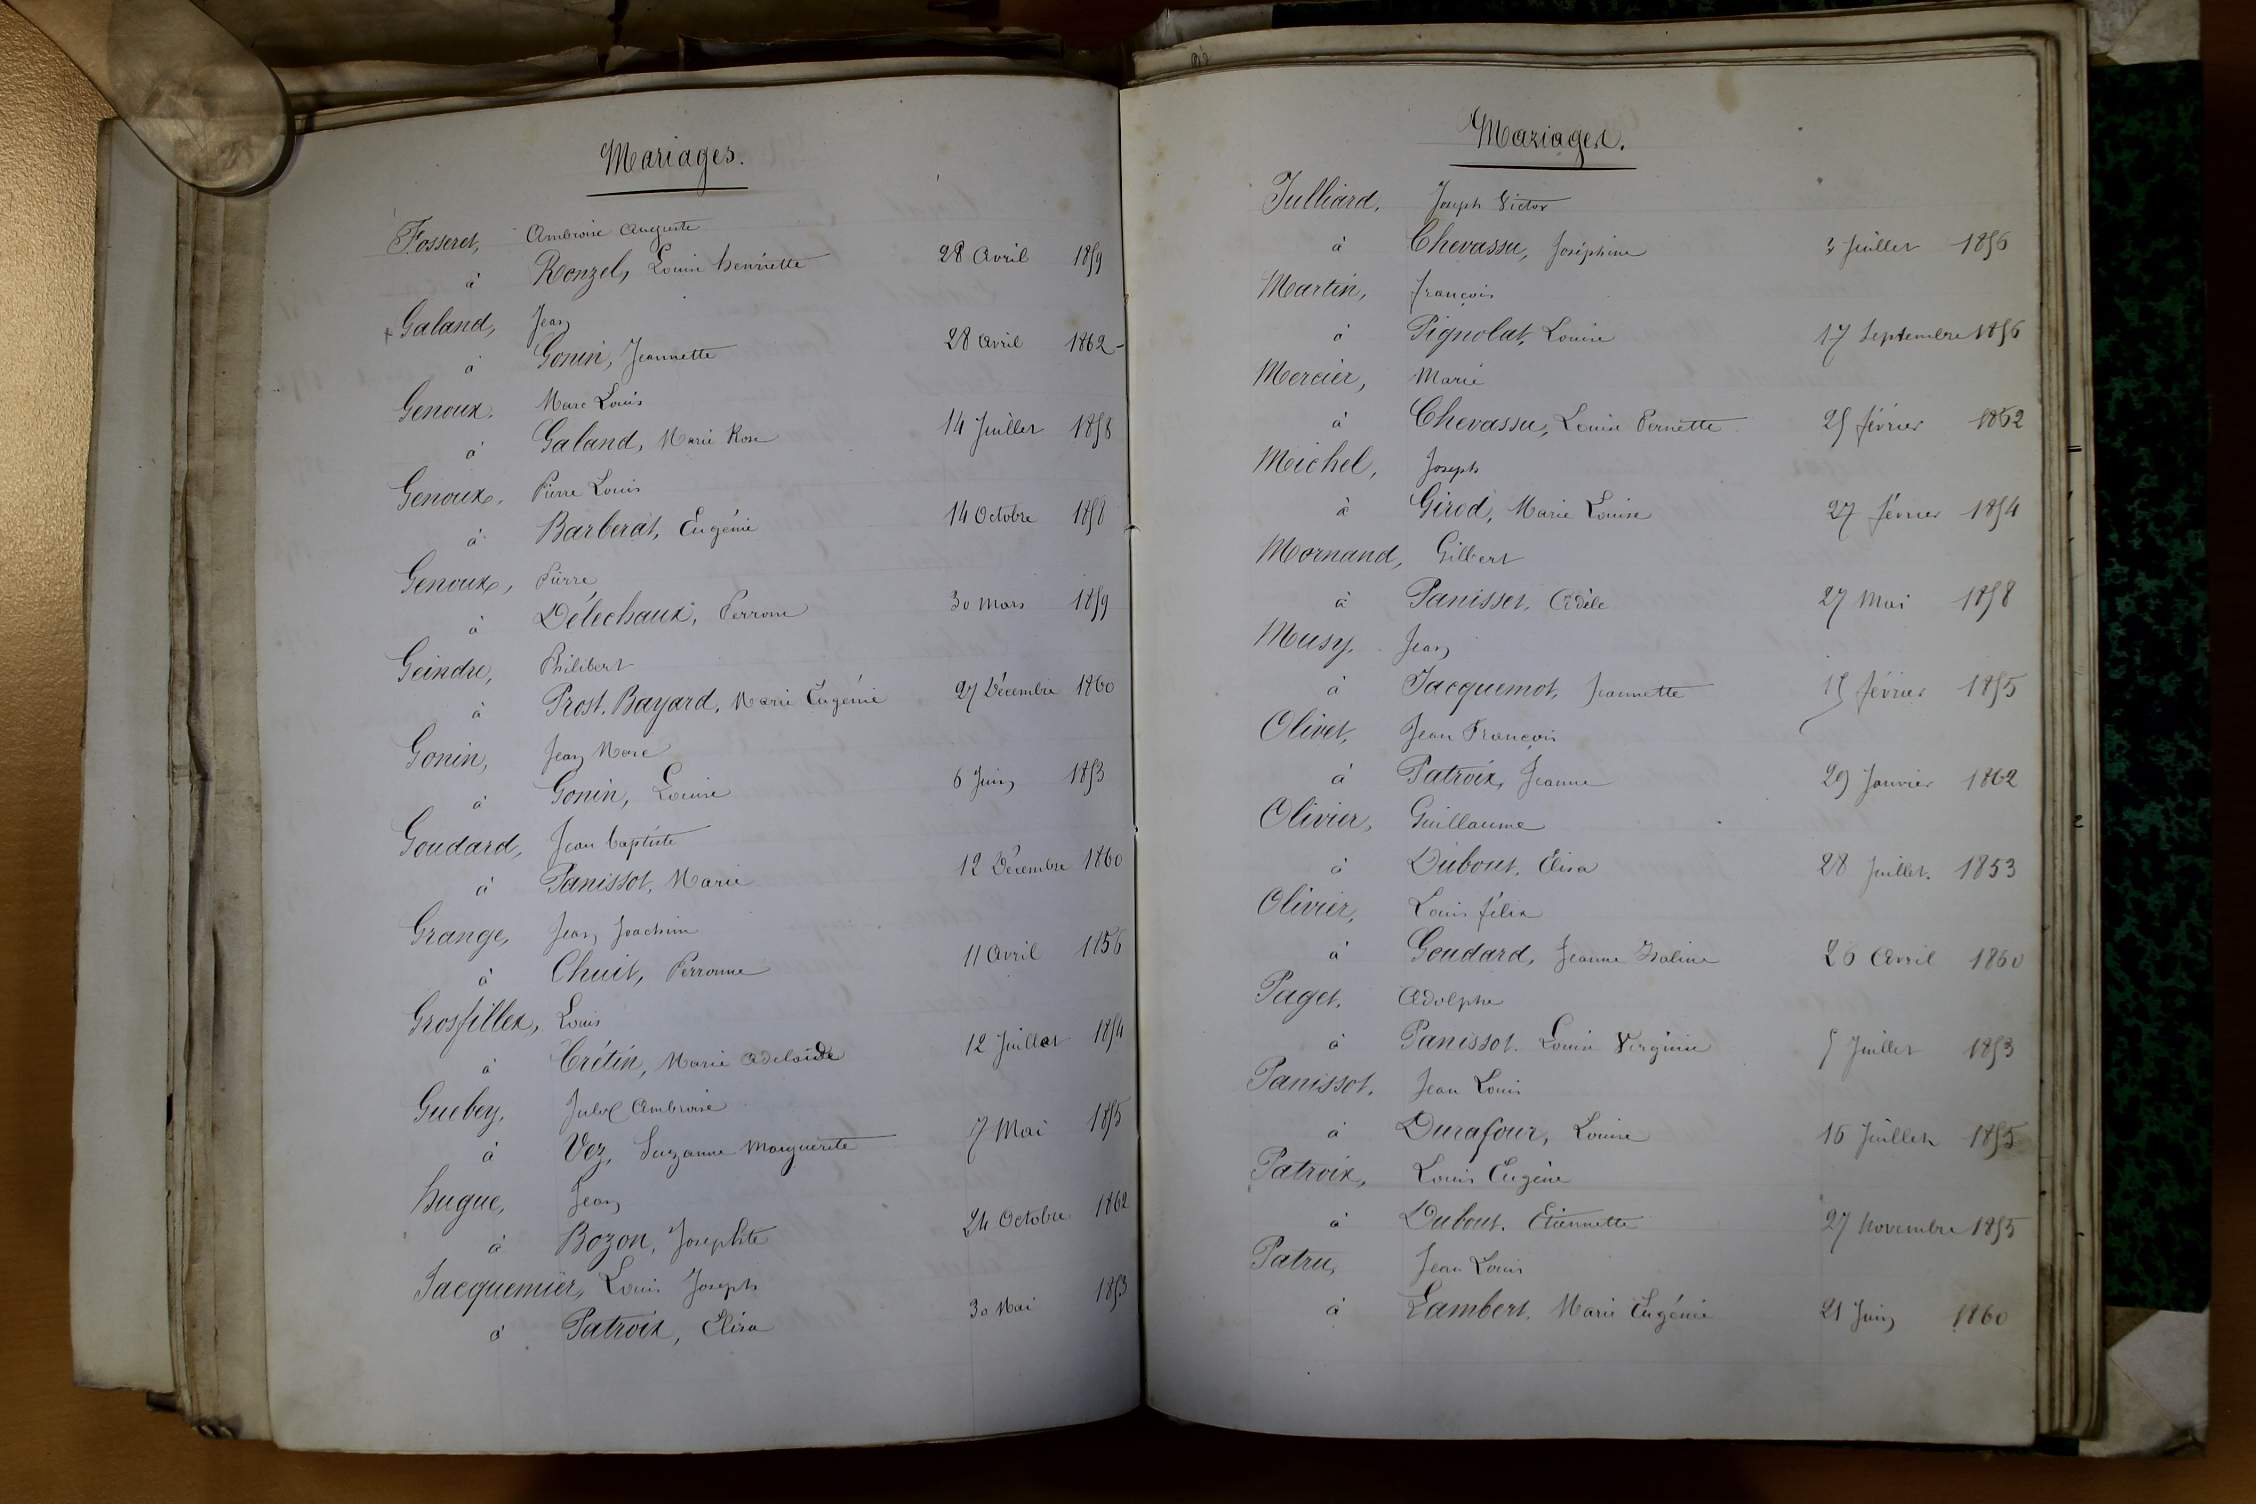 Mariages.
Fosseret, Ambroise Auguste
à Ronzel, Louise henriette 28 Avril 1859
Galand, Jean
à Gonin, Jeannette 28 avril 1862
Genoux, Marc Louis
à Galand, Marie Rose 14 Juillet 1858
Genoux, Pierre Louis
à Barberat, Eugénie 14 Octobre 1858
Genoux, Pierre
à Déléchaux, Perrone 30 Mars 1859
Geindre, Philibert
à Prost. Bayard, Marie Eugénie 27 Décembre 1860
Gonin, Jean Marc
à Gonin, Louise 6 Juin 1853
Goudard, Jean baptiste
à Panissot, Marie 12 Décembre 1860
Grange, Jean Joachim
à Chuit, Perronne 11 Avril 1156
Grosfillex, Louis
à Crétin, Marie Adelaïde 12 Juillet 1854
Guebey, Ambroise
à Vez, Suzanne Marguerite 7 Mai 1855
hugue, Jean
à Bozon, Josephte 24 Octobre 1862
Jacquemier, Louis Joseph
à Patroix, Elisa 30 Mai 1853
Mariages.
Julliard, Joseph Victor
à Chevassu, Joséphine 3 Juillet 1856
Martin, françois
à Pignolat, Louise 17 Septembre 1856
Mercier, Marie
à Chevassu, Louise Pernette 25 février 1862
Michel, Joseph
à Girod, Marie Louise 27 février 1854
Mornand, Gilbert
à Panisset, Adèle 27 Mai 1858
Musy, Jean
à Jacquemot, Jeannette 15 février 1855
Olivet, Jean François
à Patroix, Jeanne 29 Janvier 1862
Olivier, Guillaume
à Dubout, Elisa 28 Juillet. 1853
Olivier, Louis félix
à Goudard, Jeanne Isaline 26 Avril 1860
Paget, Adolphe
à Panissot. Louise Virginie 5 Juillet 1853
Panissot, Jean Louis
à Durafour, Louise 16 Juillet 1855
Patroix, Louis Eugène
à Dubout. Etiennette 27 Novembre 1855
Patru, Jean Louis
à Lambert, Marie Eugénie 21 Juin 1860